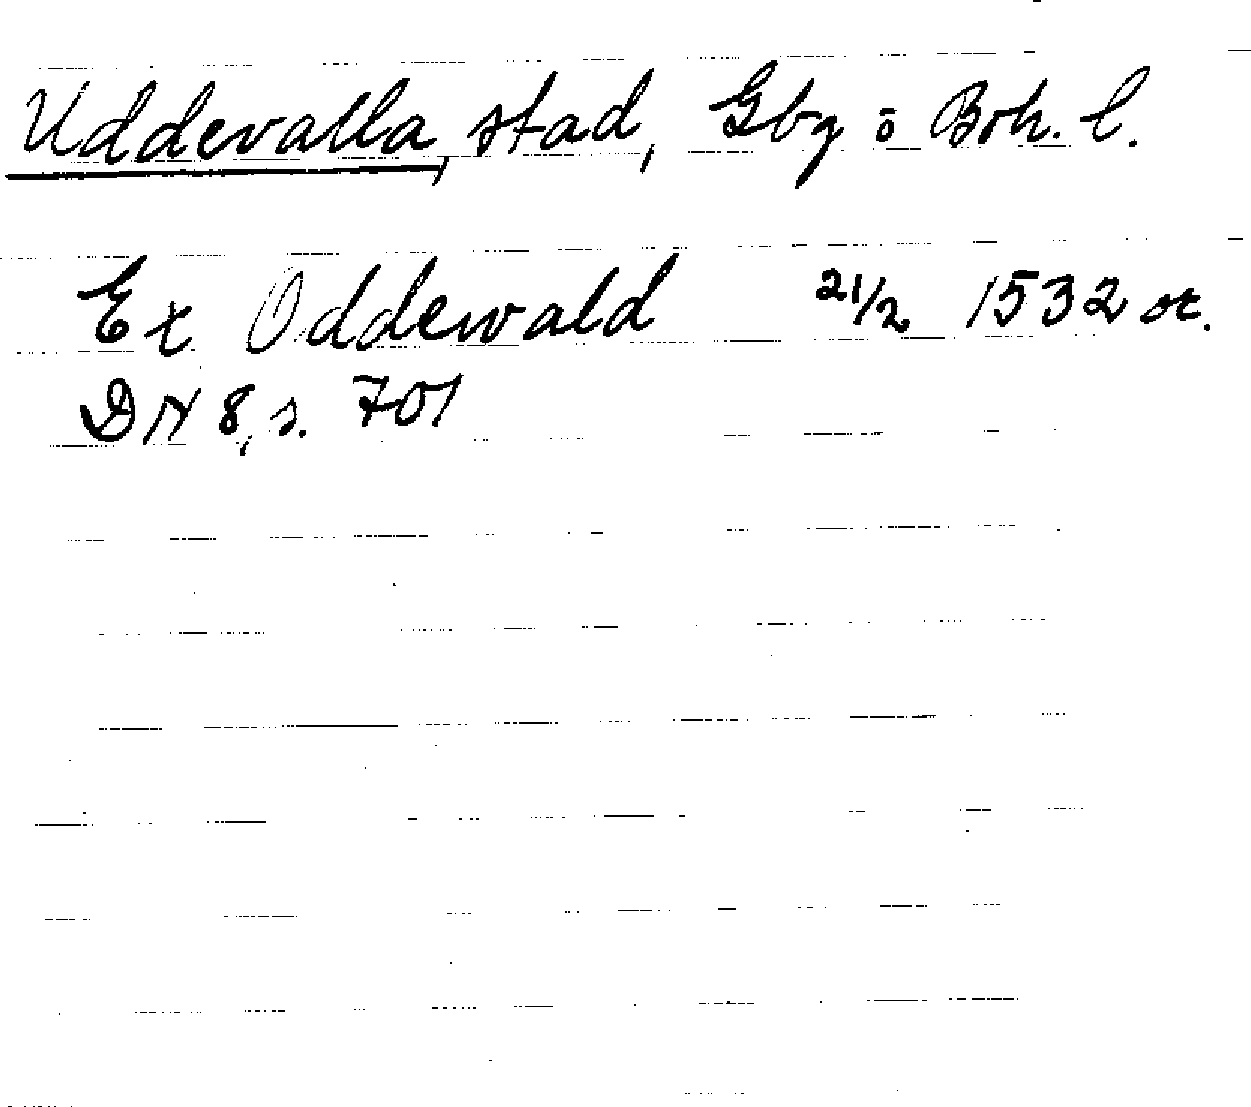 Uddevalla, stad, Gbg o Boh. l.
Ex Oddewald 21/2 1532 or.
DN 8, s. 701